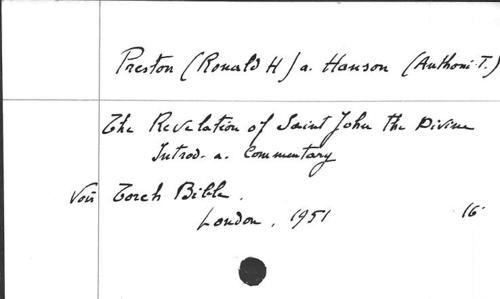 Preston (Ronald H) a. Hanson (Anthoni T.)
The Revelation of Saint John the Divine
Introd. a. Commentary
Voir Torch Bible.
London, 1951 16°